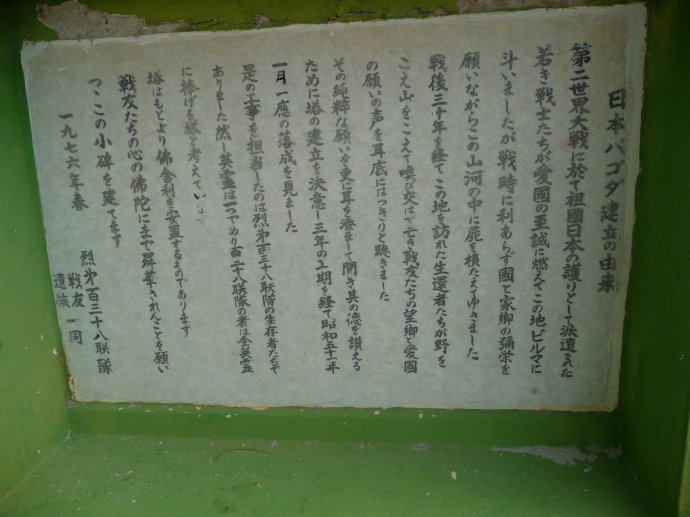 日本パゴダ建立の由来
第二世界大戦に於て祖國日本の護りとして派遣された
若き戦士たちが愛國の至誠に燃えてこの地ビルマに
斗いましたが戦時に利あらず國と家郷の彌栄を
願いながらこの山河の中に屍を横たえてゆきました
戦後三十年を経てこの地を訪れた生還者たちが野を
こえ山をこえて喚び交はす戦友たちの望郷と愛國
の願いの声を耳底にはっきりと聴きました
その純粋な願いを更に耳を澄まして聞き其の徳を讃える
ために塔の建立を決意し三年の工期を経て昭和五十一年
一月一應の落成を見ました
是の工事を担当したのは烈第百三十八联隊の生存者たちで
ありました然し英霊は一つであり百三十八联隊の者は全英霊
に捧げる塔と考えてい
塔はもとより佛舎利を安置するものであります
戦友たちの心の佛陀にまで昇華されんことを願い
つゝこの小碑を建てます
一九七六年春
烈第百三十八联隊
戦友
遺族
一同